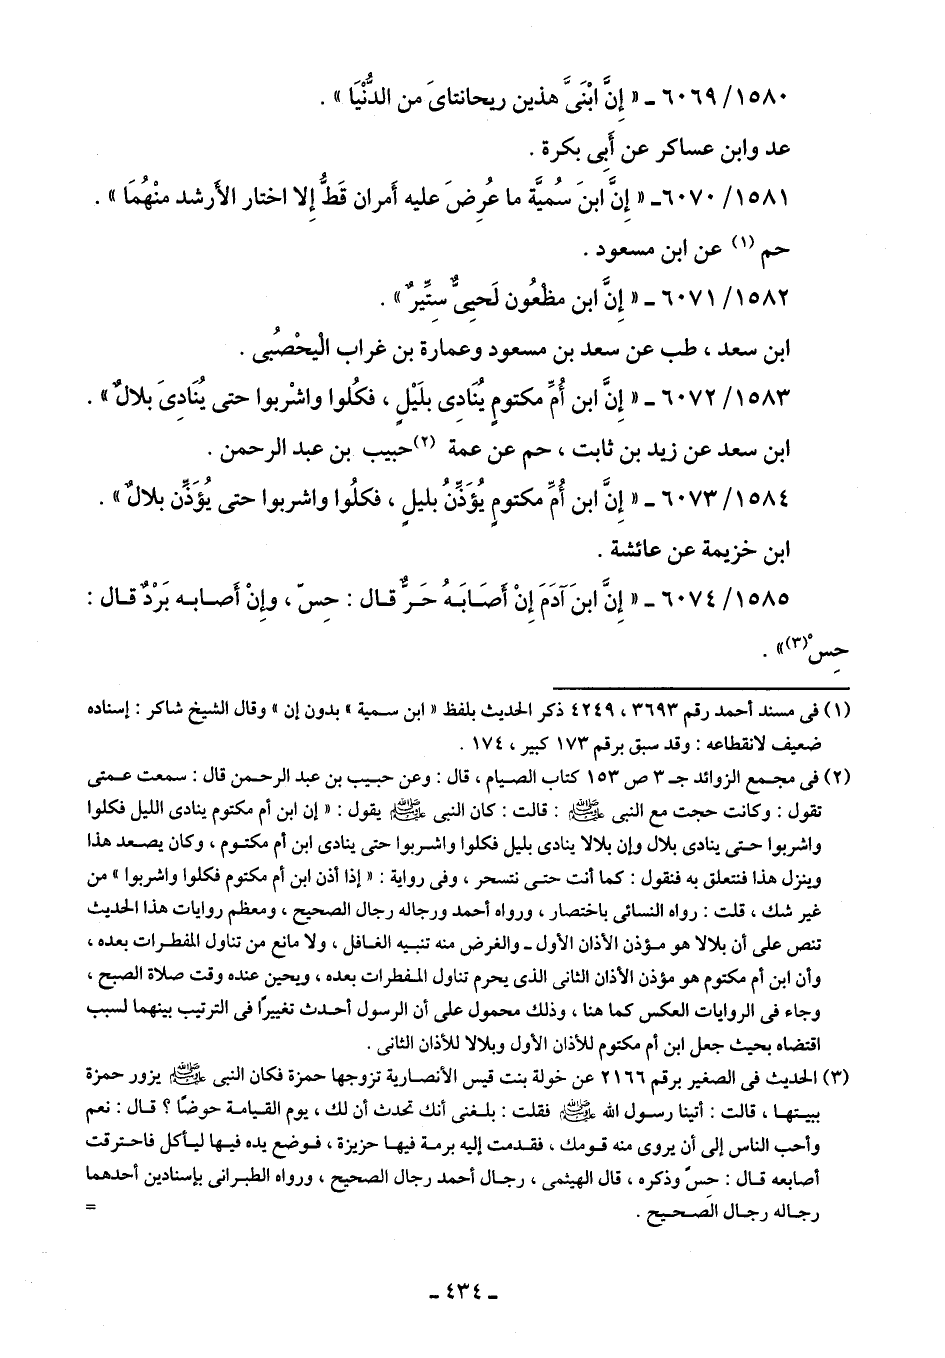 ١٥٨٠/ ٦٠٦٩ ـ « إِنَّ ابْنَىَّ هذين ريحانتاىَ من الدُّنْيَا » .
عد وابن عساكر عن أَبِى بكرة .
١٥٨١/ ٦٠٧٠ـ « إِنَّ ابنَ سُمَيَّة ما عُرِضَ عليه أَمران قَطُّ إِلا اختار الأَرشد منْهُمَا » .
حم (١) عن ابن مسعود .
١٥٨٢/ ٦٠٧١ ـ « إِنَّ ابن مظْعُون لَحَيِىٌّ ستِّيرٌ » .
ابن سعد ، طب عن سعد بن مسعود وعمارة بن غراب الْيحْصُبِى .
١٥٨٣/ ٦٠٧٢ ـ « إِنَّ ابن أُمِّ مكتومٍ يُنَادِى بلَيْلٍ ، فكُلوا واشْربوا حتى يُنَادِىَ بلالٌ » .
ابن سعد عن زيد بن ثابت ، حم عن عمة (٢) حبيب بن عبد الرحمن .
١٥٨٤/ ٦٠٧٣ ـ « إِنَّ ابن أُمِّ مكتومٍ يُؤَذِّنُ بليلٍ ، فكلُوا واشربوا حتى يُؤَذِّن بلالٌ » .
ابن خزيمة عن عائشة .
١٥٨٥/ ٦٠٧٤ ـ « إِنَّ ابنَ آدَمَ إِنْ أَصَابَهُ حَرٌّ قال : حِسّ ، وإِنْ أَصابه بَرْدٌ قال :
حِسْ(٣)» .
(١) فى مسند أحمد رقم ٣٦٩٣ ، ٤٢٤٩ ذكر الحديث بلفظ « ابن سمية » بدون إن » وقال الشيخ شاكر : إسناده
ضعيف لانقطاعه : وقد سبق برقم ١٧٣ كبير ، ١٧٤ .
(٢) فى مجمع الزوائد جـ ٣ ص ١٥٣ كتاب الصيام ، قال : وعن حبيب بن عبد الرحمن قال : سمعت عمتى
تقول : وكانت حجت مع النبى ﷺ : قالت : كان النبى ﷺ يقول : « إن ابن أم مكتوم ينادى الليل فكلوا
واشربوا حتى ينادى بلال وإن بلالا ينادى بليل فكلوا واشربوا حتى ينادى ابن أم مكتوم ، وكان يصعد هذا
وينزل هذا فنتعلق به فنقول : كما أنت حتى نتسحر ، وفى رواية : « إذا أذن ابن أم مكتوم فكلوا واشربوا » من
غير شك ، قلت : رواه النسائى باختصار ، ورواه أحمد ورجاله رجال الصحيح ، ومعظم روايات هذا الحديث
تنص على أن بلالا هو مؤذن الأذان الأول ـ والغرض منه تنبيه الغافل ، ولا مانع من تناول المفطرات بعده ،
وأن ابن أم مكتوم هو مؤذن الأذان الثانى الذى يحرم تناول المفطرات بعده ، ويحين عنده وقت صلاة الصبح ،
وجاء فى الروايات العكس كما هنا ، وذلك محمول على أن الرسول أحدث تغييراً فى الترتيب بينهما لسبب
اقتضاه بحيث جعل ابن أم مكتوم للأذان الأول وبلالا للأذان الثانى .
(٣) الحديث فى الصغير برقم ٢١٦٦ عن خولة بنت قيس الأنصارية تزوجها حمزة فكان النبى ﷺ يزور حمزة
ببيتها ، قالت : أتينا رسول الله ﷺ فقلت : بلغنى أنك تحدث أن لك ، يوم القيامة حوضًا ؟ قال : نعم
وأحب الناس إلى أن يروى منه قومك ، فقدمت إليه برمة فيها حزيزة ، فوضع يده فيها ليأكل فاحترقت
أصابعه قال : حِسّ وذكره ، قال الهيثمى ، رجال أحمد رجال الصحيح ، ورواه الطبرانى بإسنادين أحدهما
رجاله رجال الصحيح . =
ـ ٤٣٤ ـ